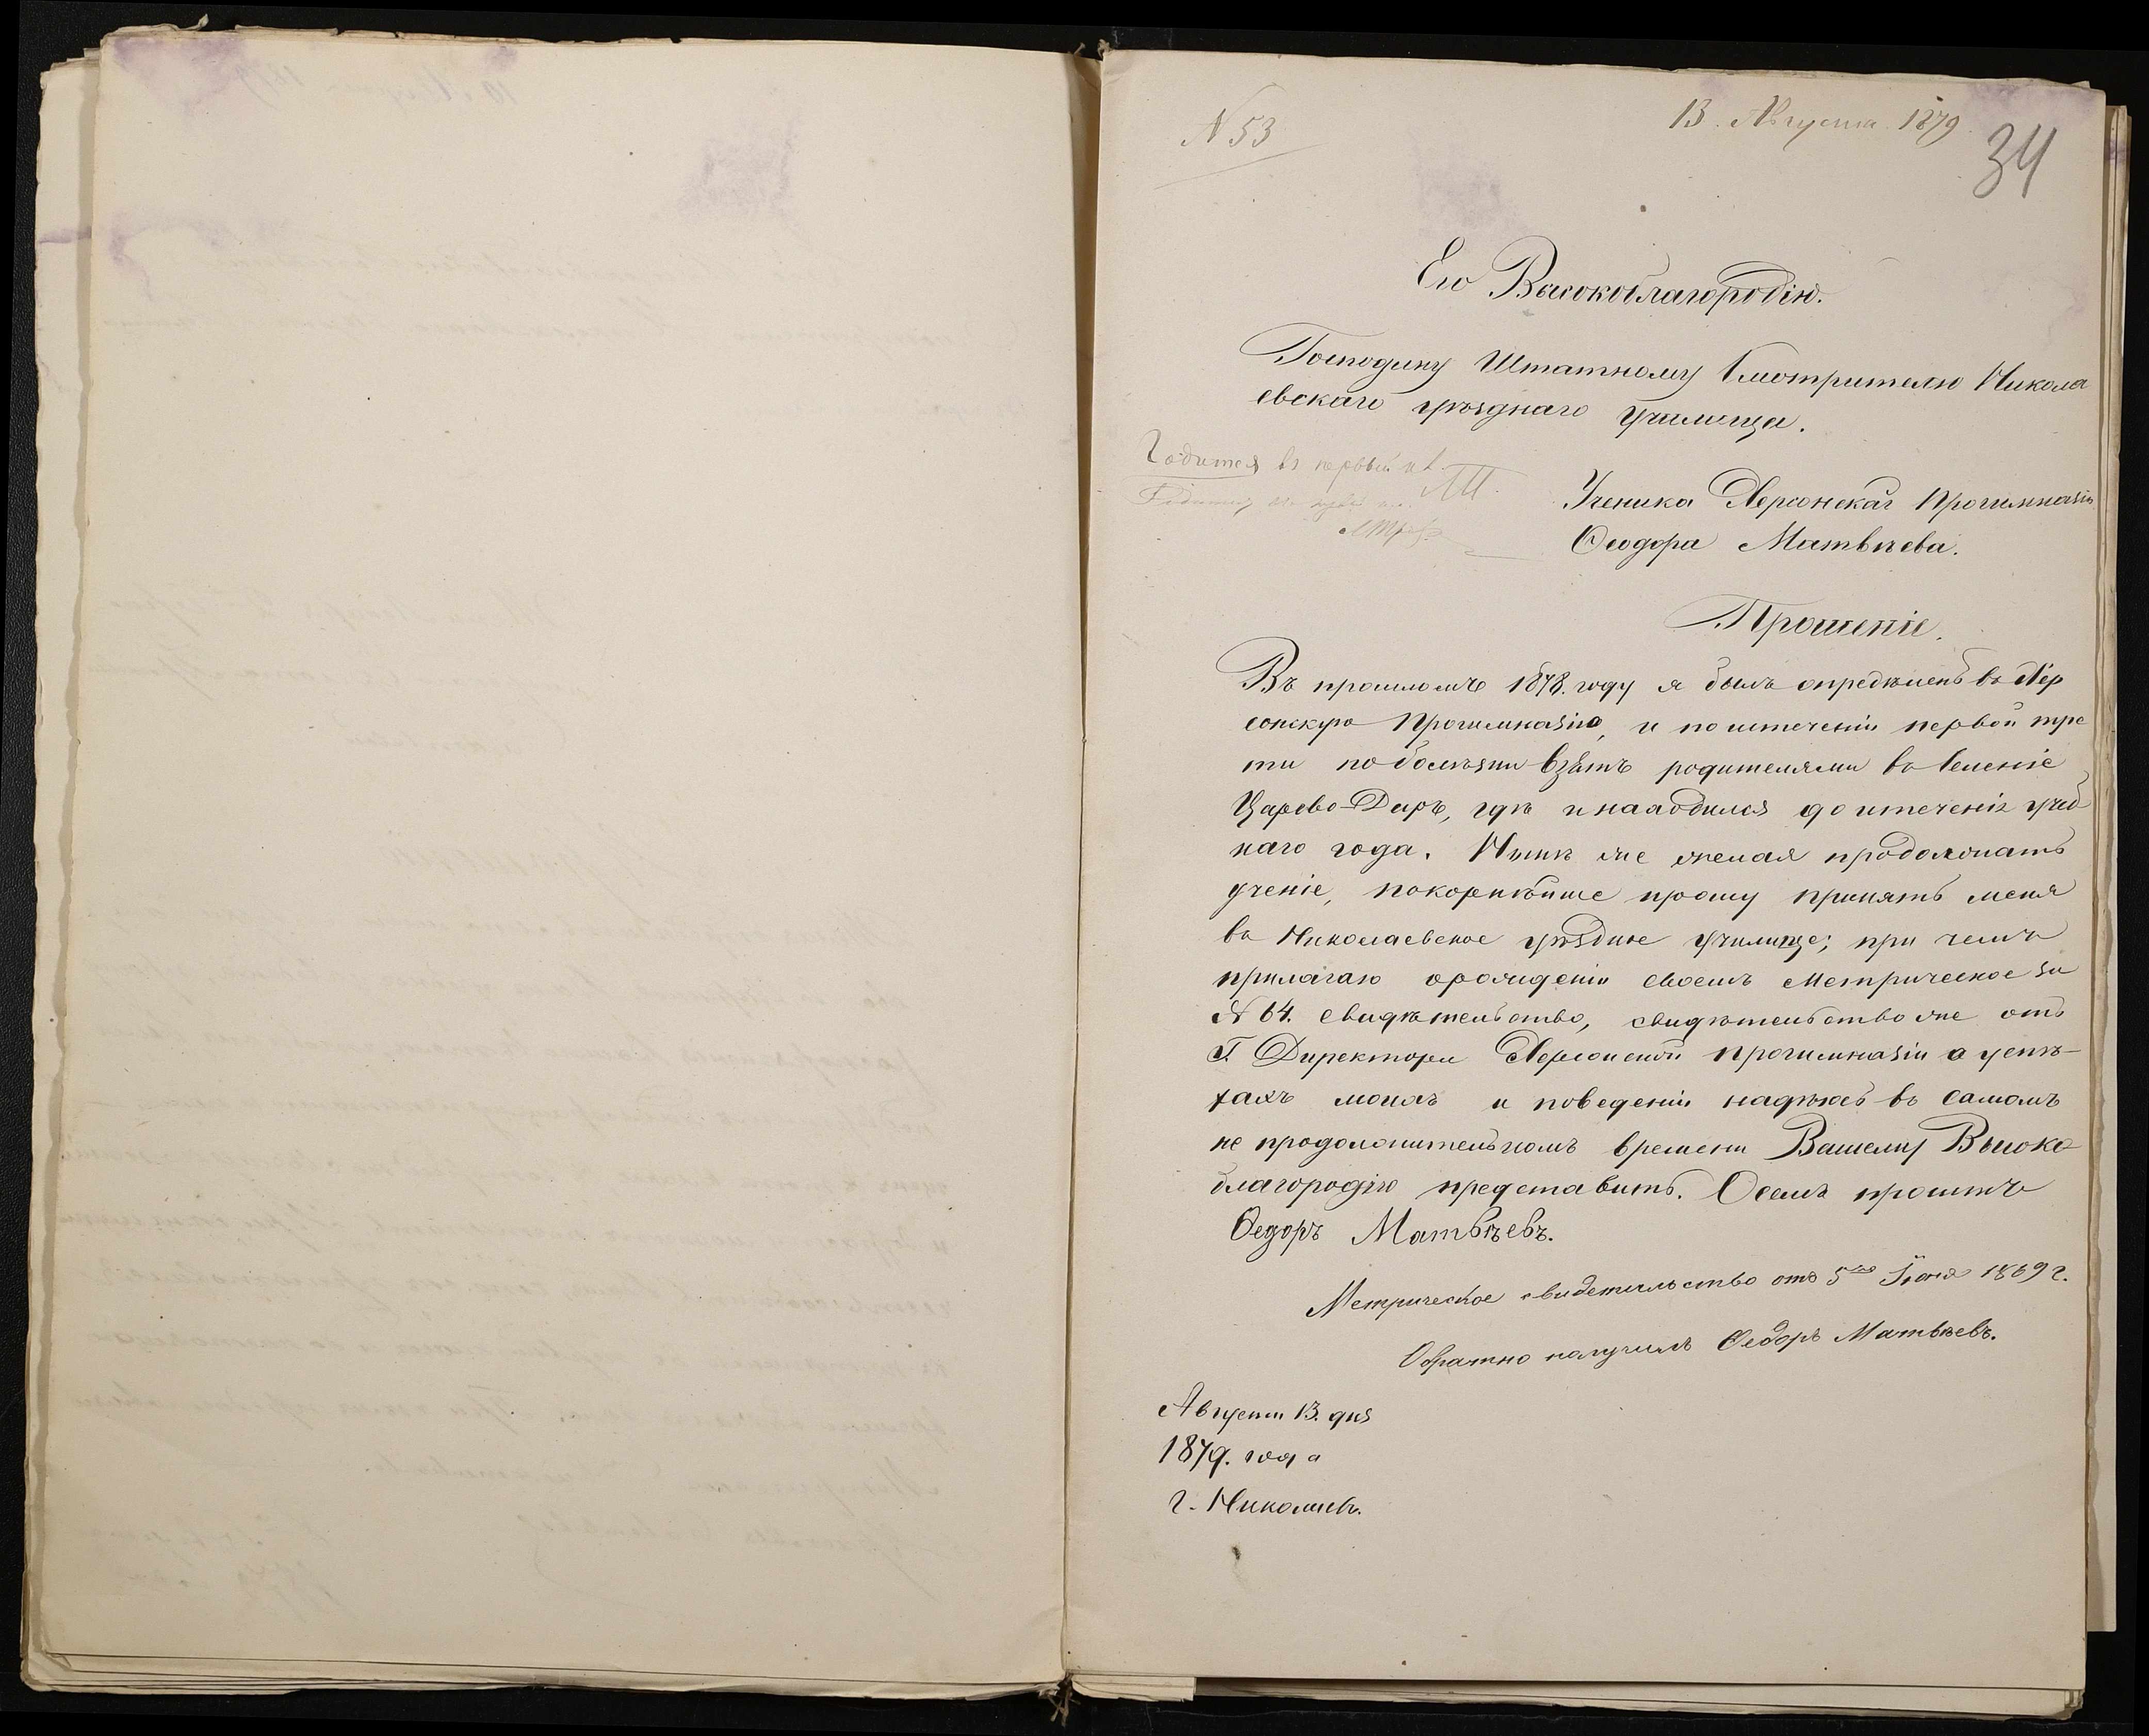 N 53
13. Августа 1879
34
Его Высокоблагородію.
Господину Штатному Смотрителю Никола
евскаго уѣзднаго Училища.
Годится въ первый кл.
Ученика Херсонской Прогимназіи
Ѳеодора Матвѣева.
Прошеніе.
Въ прошломъ 1878. году я былъ опредѣленъ въ Хер
сонскую Прогимназію, и по истеченіи первой тре
ти по болѣзни взятъ родителями въ селеніе
Царево-Даръ, гдѣ и находился до истеченія учеб
наго года. Нынѣ же желая продолжать
ученіе, покорнѣйше прошу принять меня
въ Николаевское уѣздное Училище; при чемъ
прилагаю о рожденіи своемъ Метрическое за
N 64. свидѣтельство, свидѣтельство же отъ
Г. Директора Херсонской прогимназіи о успѣ-
хахъ моихъ и поведеніи надѣюсь въ самомъ
не продолжительномъ времени Вашему Высоко
благородію представить. О семъ проситъ
Ѳедоръ Матвѣевъ.
Метрическое свидетельство отъ 5го Іюня 1869 г.
Обратно получилъ Ѳедоръ Матвѣевъ.
Августа 13. дня
1879. года
г. Николаевъ.